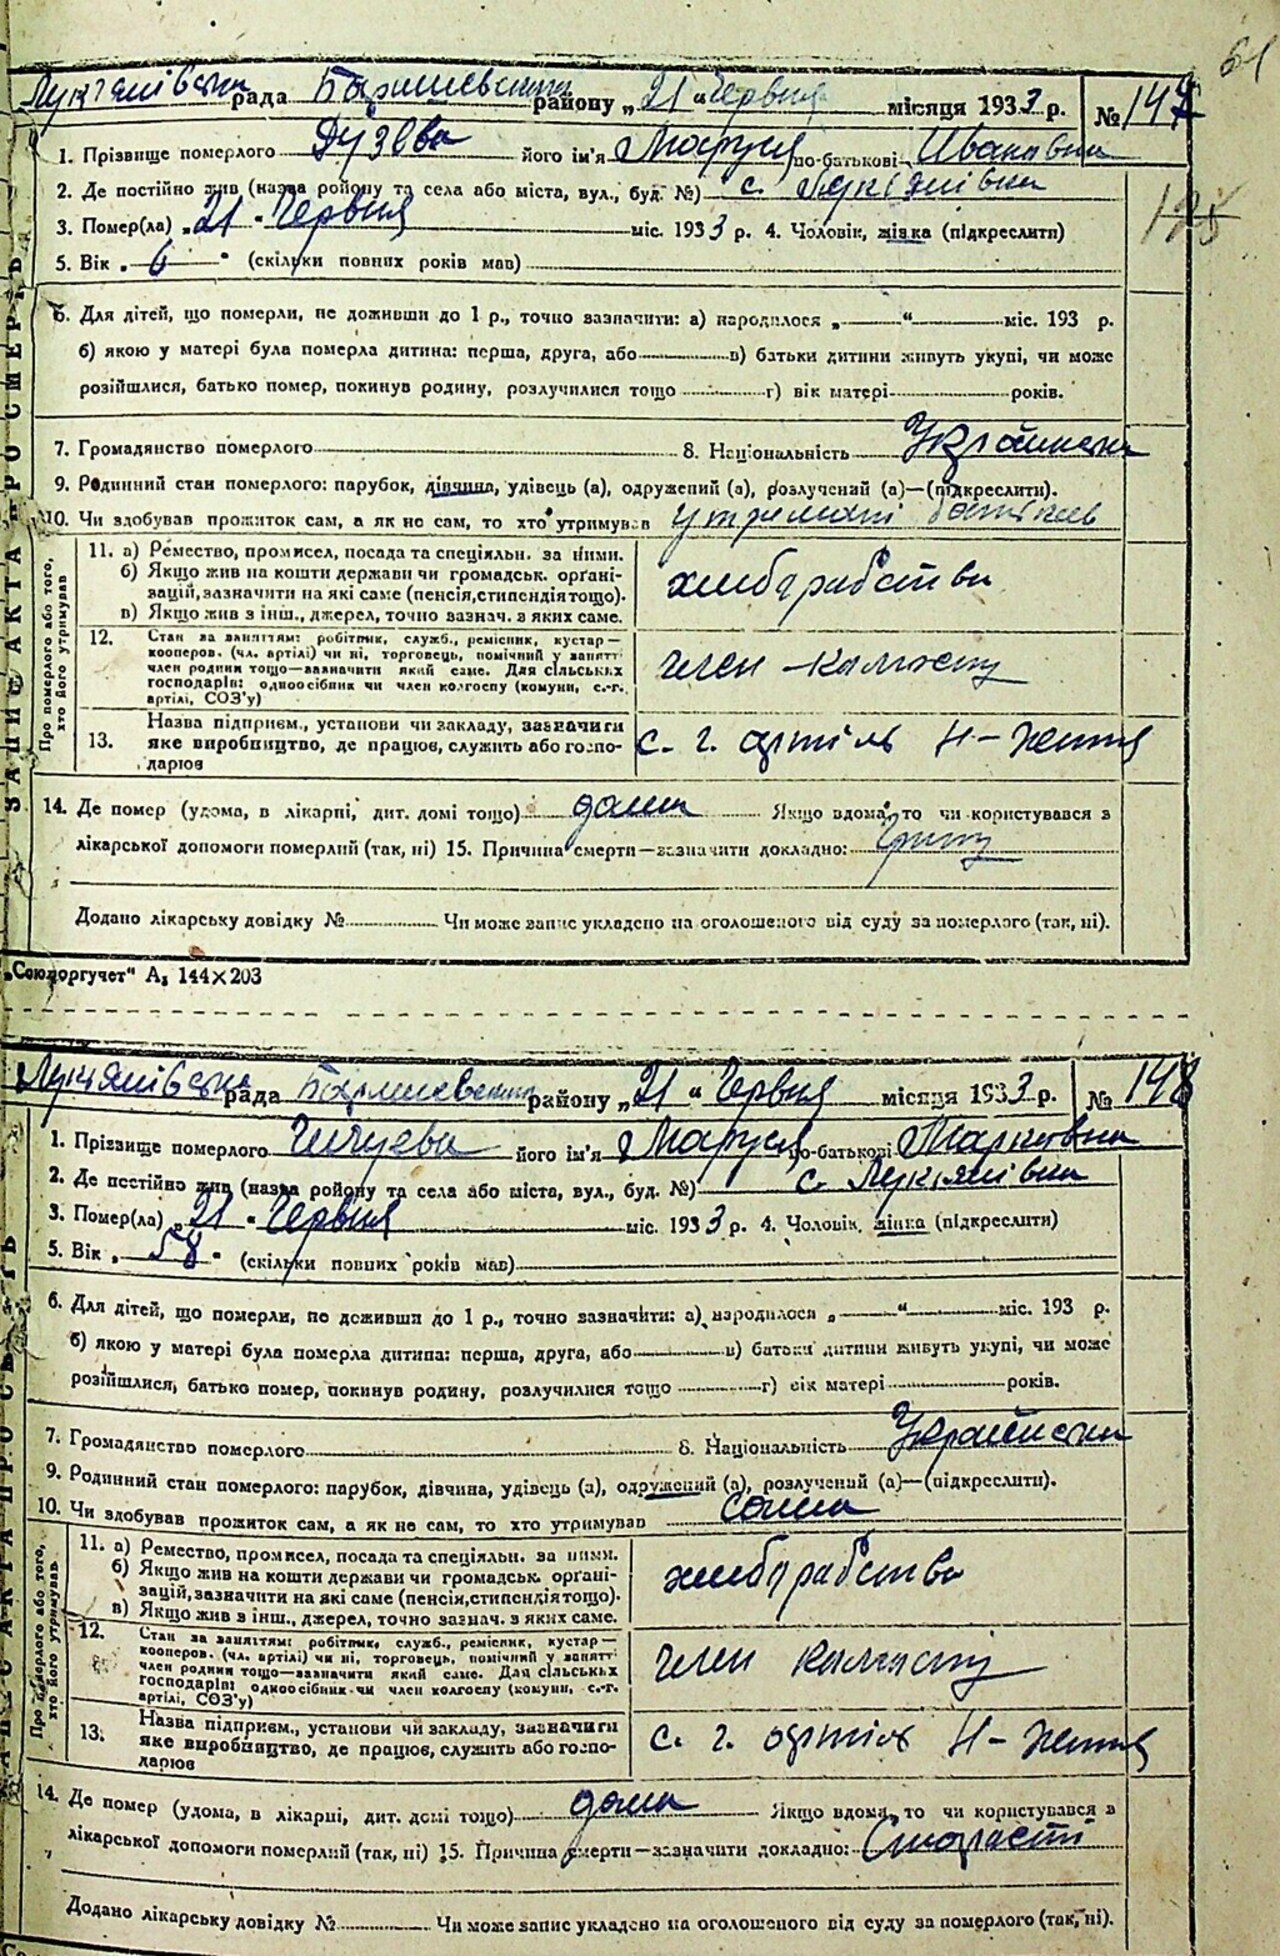 61
Лук'янівська рада Баришевського району „21" Червня місяця 1933 р. № 147
1. Прізвище померлого його ім'я Маруся по-батькові Ивановна
2. Де постійно жив (назва ройону та села або міста, вул., буд. №) с. Лукянівка
125
3. Помер(ла) „21" Червня міс. 1933 р. 4. Чоловік, жінка (підкреслити)
5. Вік „6" (скільки повних років мав)
6. Для дітей, що померли, не доживши до 1 р., точно зазначити: а) народилося „ " міс. 193 р.
б) якою у матері була померла дитина: перша, друга, або в) батьки дитини живуть укупі, чи може
розійшлися, батько помер, покинув родину, розлучилися тощо г) вік матері років.
7. Громадянство померлого 8. Національність Українська
9. Родинний стан померлого: парубок, дівчина, удівець (а), одружений (а), розлучений (а)—(підкреслити).
10. Чи здобував прожиток сам, а як не сам, то хто утримував
ЗАПИС АКТА ПРО СМЕРТЬ
Про померлого або того, хто його утримував
11. а) Ремество, промисел, посада та спеціяльн. за ними.
б) Якщо жив на кошти держави чи громадськ. орґані-
зацій, зазначити на які саме (пенсія, стипендія тощо).
в) Якщо жив з інш., джерел, точно зазнач. з яких саме.
хлиборабства
12. Стан за заняттям: робітник, служб., ремісник, кустар—
кооперов. (чл. артілі) чи ні, торговець, помічний у занятт
член родини тощо—зазначити який саме. Для сільських
господарів: одноосібник чи член колгоспу (комуни, с.-г.
артілі, СОЗ'у)
член колгоспу
13. Назва підприєм., установи чи закладу, зазначити
яке виробництво, де працює, служить або госпо-
дарює
с. г. артіль Н-життя
14. Де помер (удома, в лікарні, дит. домі тощо) дома Якщо вдома, то чи користувався з
лікарської допомоги померлий (так, ні) 15. Причина смерти—зазначити докладно:
Додано лікарську довідку № Чи може запис укладено на оголошеного від суду за померлого (так, ні).
„Союзоргучет" А₅ 144×203
Лукянівська рада Баришевського району „21" Червня місяця 1933 р. № 148
1. Прізвище померлого його ім'я Маруся по-батькові Марковна
2. Де постійно жив (назва ройону та села або міста, вул., буд. №) с. Лукянівка
3. Помер(ла) „21" Червня міс. 1933 р. 4. Чоловік, жінка (підкреслити)
5. Вік „58" (скільки повних років мав)
6. Для дітей, що померли, не доживши до 1 р., точно зазначити: а) народилося „ " міс. 193 р.
б) якою у матері була померла дитина: перша, друга, або в) батьки дитини живуть укупі, чи може
розійшлися, батько помер, покинув родину, розлучилися тощо г) вік матері років.
7. Громадянство померлого 8. Національність Українська
9. Родинний стан померлого: парубок, дівчина, удівець (а), одружений (а), розлучений (а)—(підкреслити).
10. Чи здобував прожиток сам, а як не сам, то хто утримував сама
ЗАПИС АКТА ПРО СМЕРТЬ
Про померлого або того, хто його утримував
11. а) Ремество, промисел, посада та спеціяльн. за ними.
б) Якщо жив на кошти держави чи громадськ. орґані-
зацій, зазначити на які саме (пенсія, стипендія тощо).
в) Якщо жив з інш., джерел, точно зазнач. з яких саме.
хлиборабства
12. Стан за заняттям: робітник, служб., ремісник, кустар—
кооперов. (чл. артілі) чи ні, торговець, помічний у занятт
член родини тощо—зазначити який саме. Для сільських
господарів: одноосібник чи член колгоспу (комуни, с.-г.
артілі, СОЗ'у)
член колгоспу
13. Назва підприєм., установи чи закладу, зазначити
яке виробництво, де працює, служить або госпо-
дарює
с. г. артіль Н-життя
14. Де помер (удома, в лікарні, дит. домі тощо) дома Якщо вдома, то чи користувався з
лікарської допомоги померлий (так, ні) 15. Причина смерти—зазначити докладно: Старасті
Додано лікарську довідку № Чи може запис укладено на оголошеного від суду за померлого (так, ні).